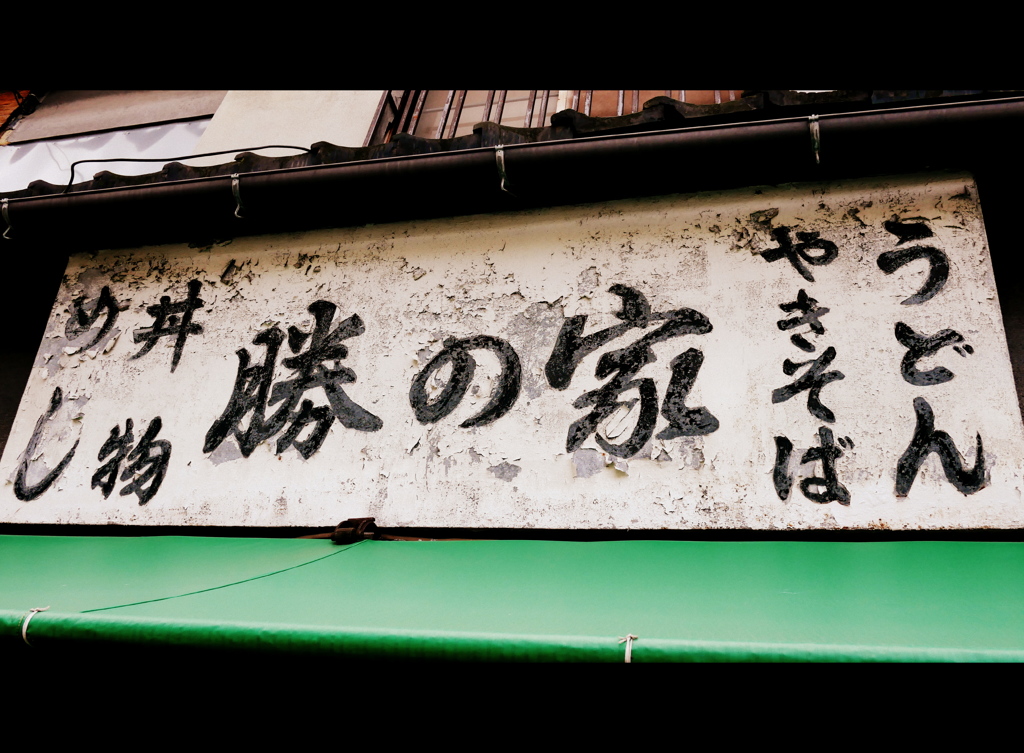 うどん
やきそば
勝の家
丼物
めし